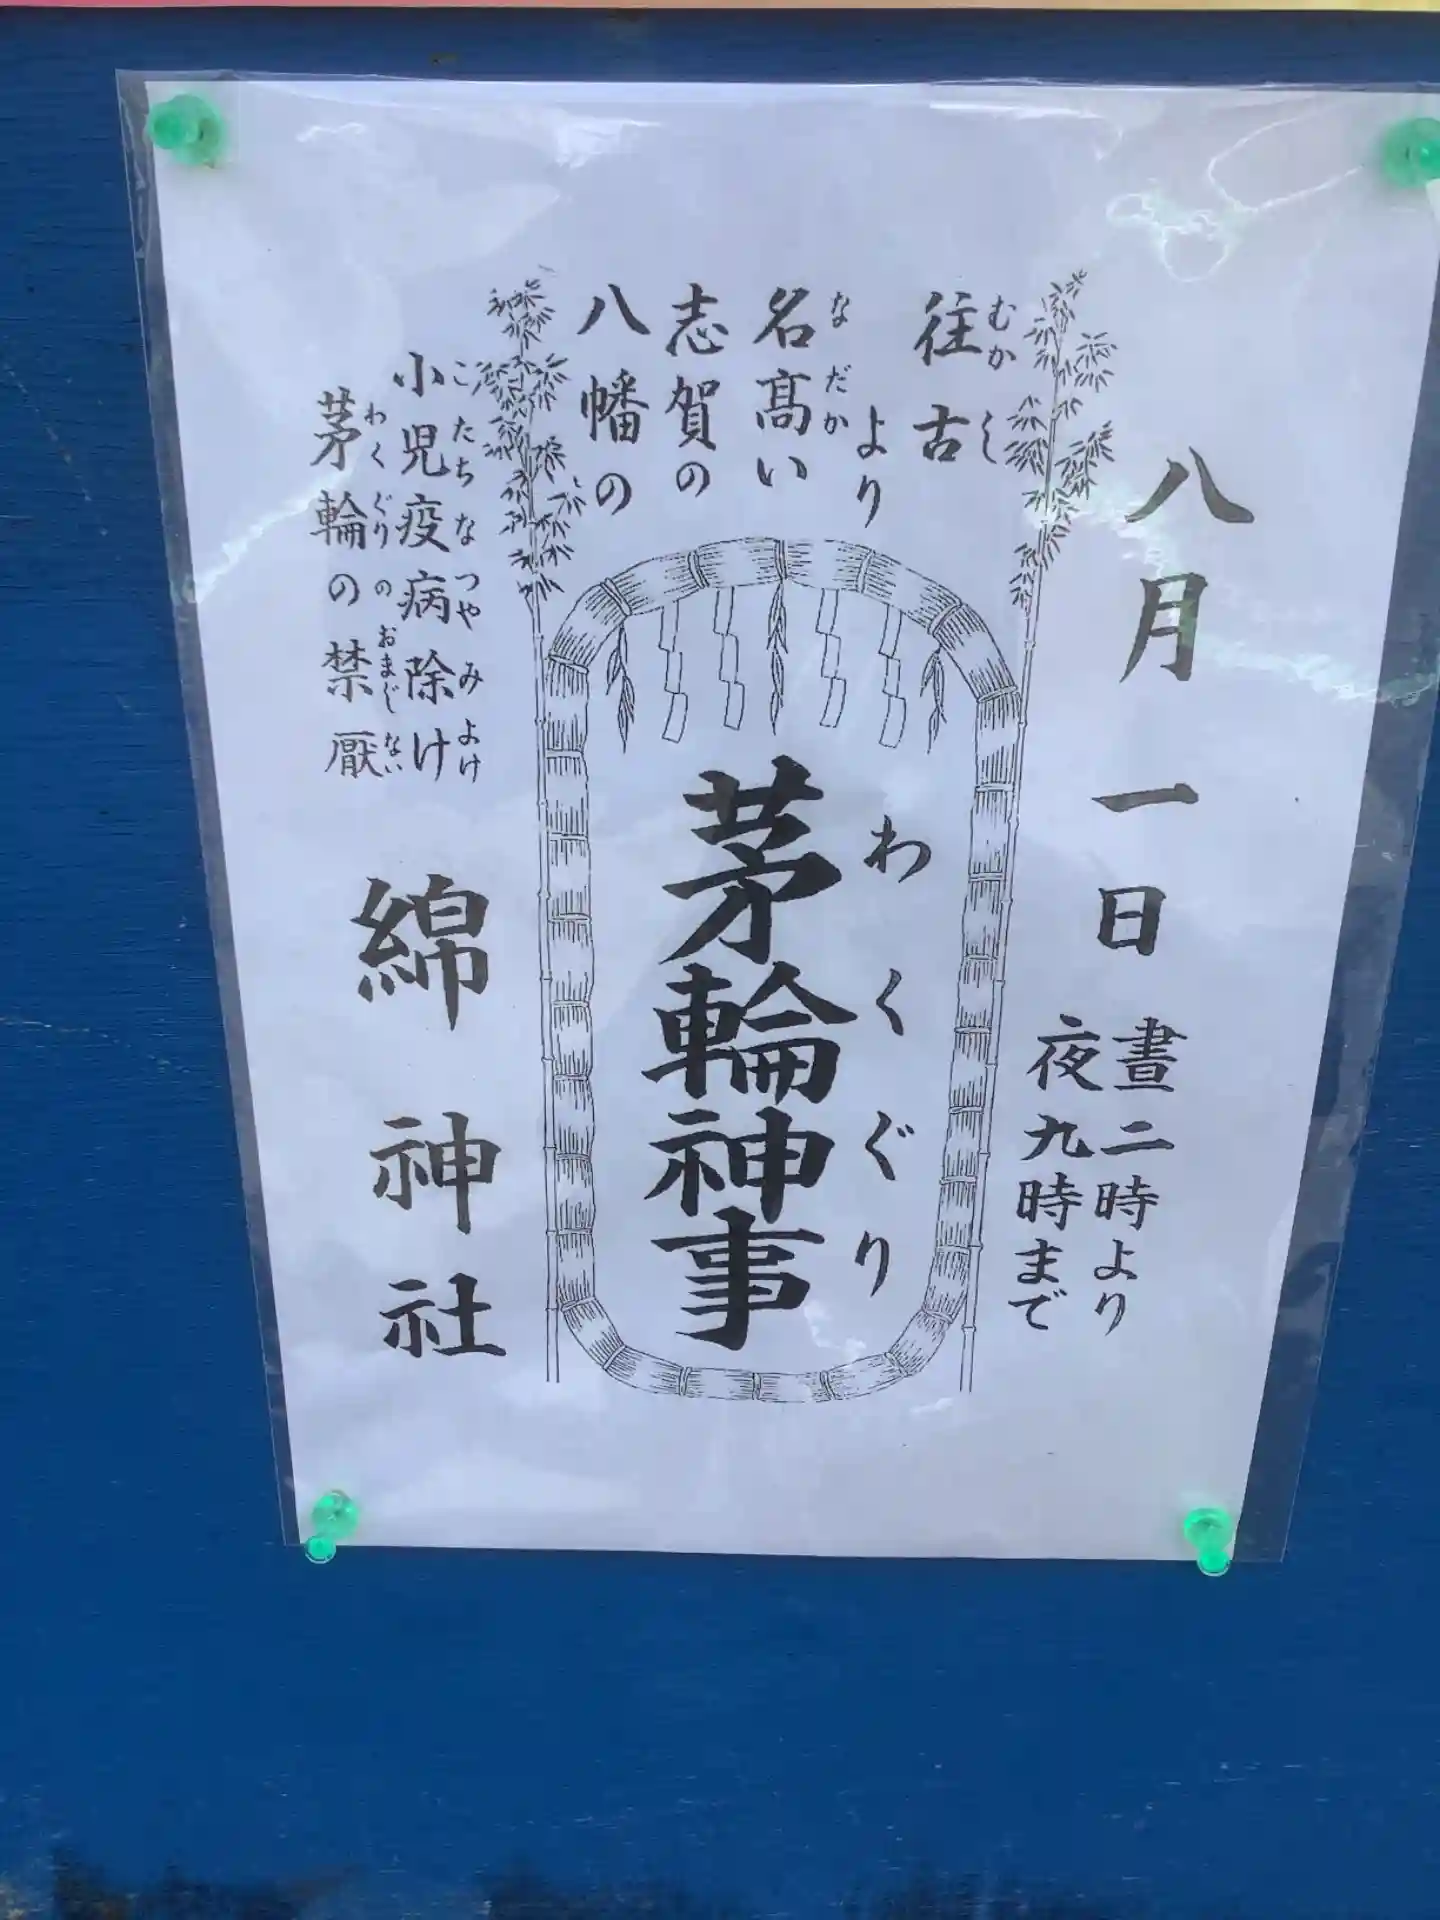 八月一日
晝二時より
夜九時まで
往古
むかし
より
名髙い
なだか
志賀の
八幡の
茅輪神事
わくぐり
小児疫病除け
こたちなつやみよけ
茅輪の禁厭
わくぐりのおまじない
綿神社